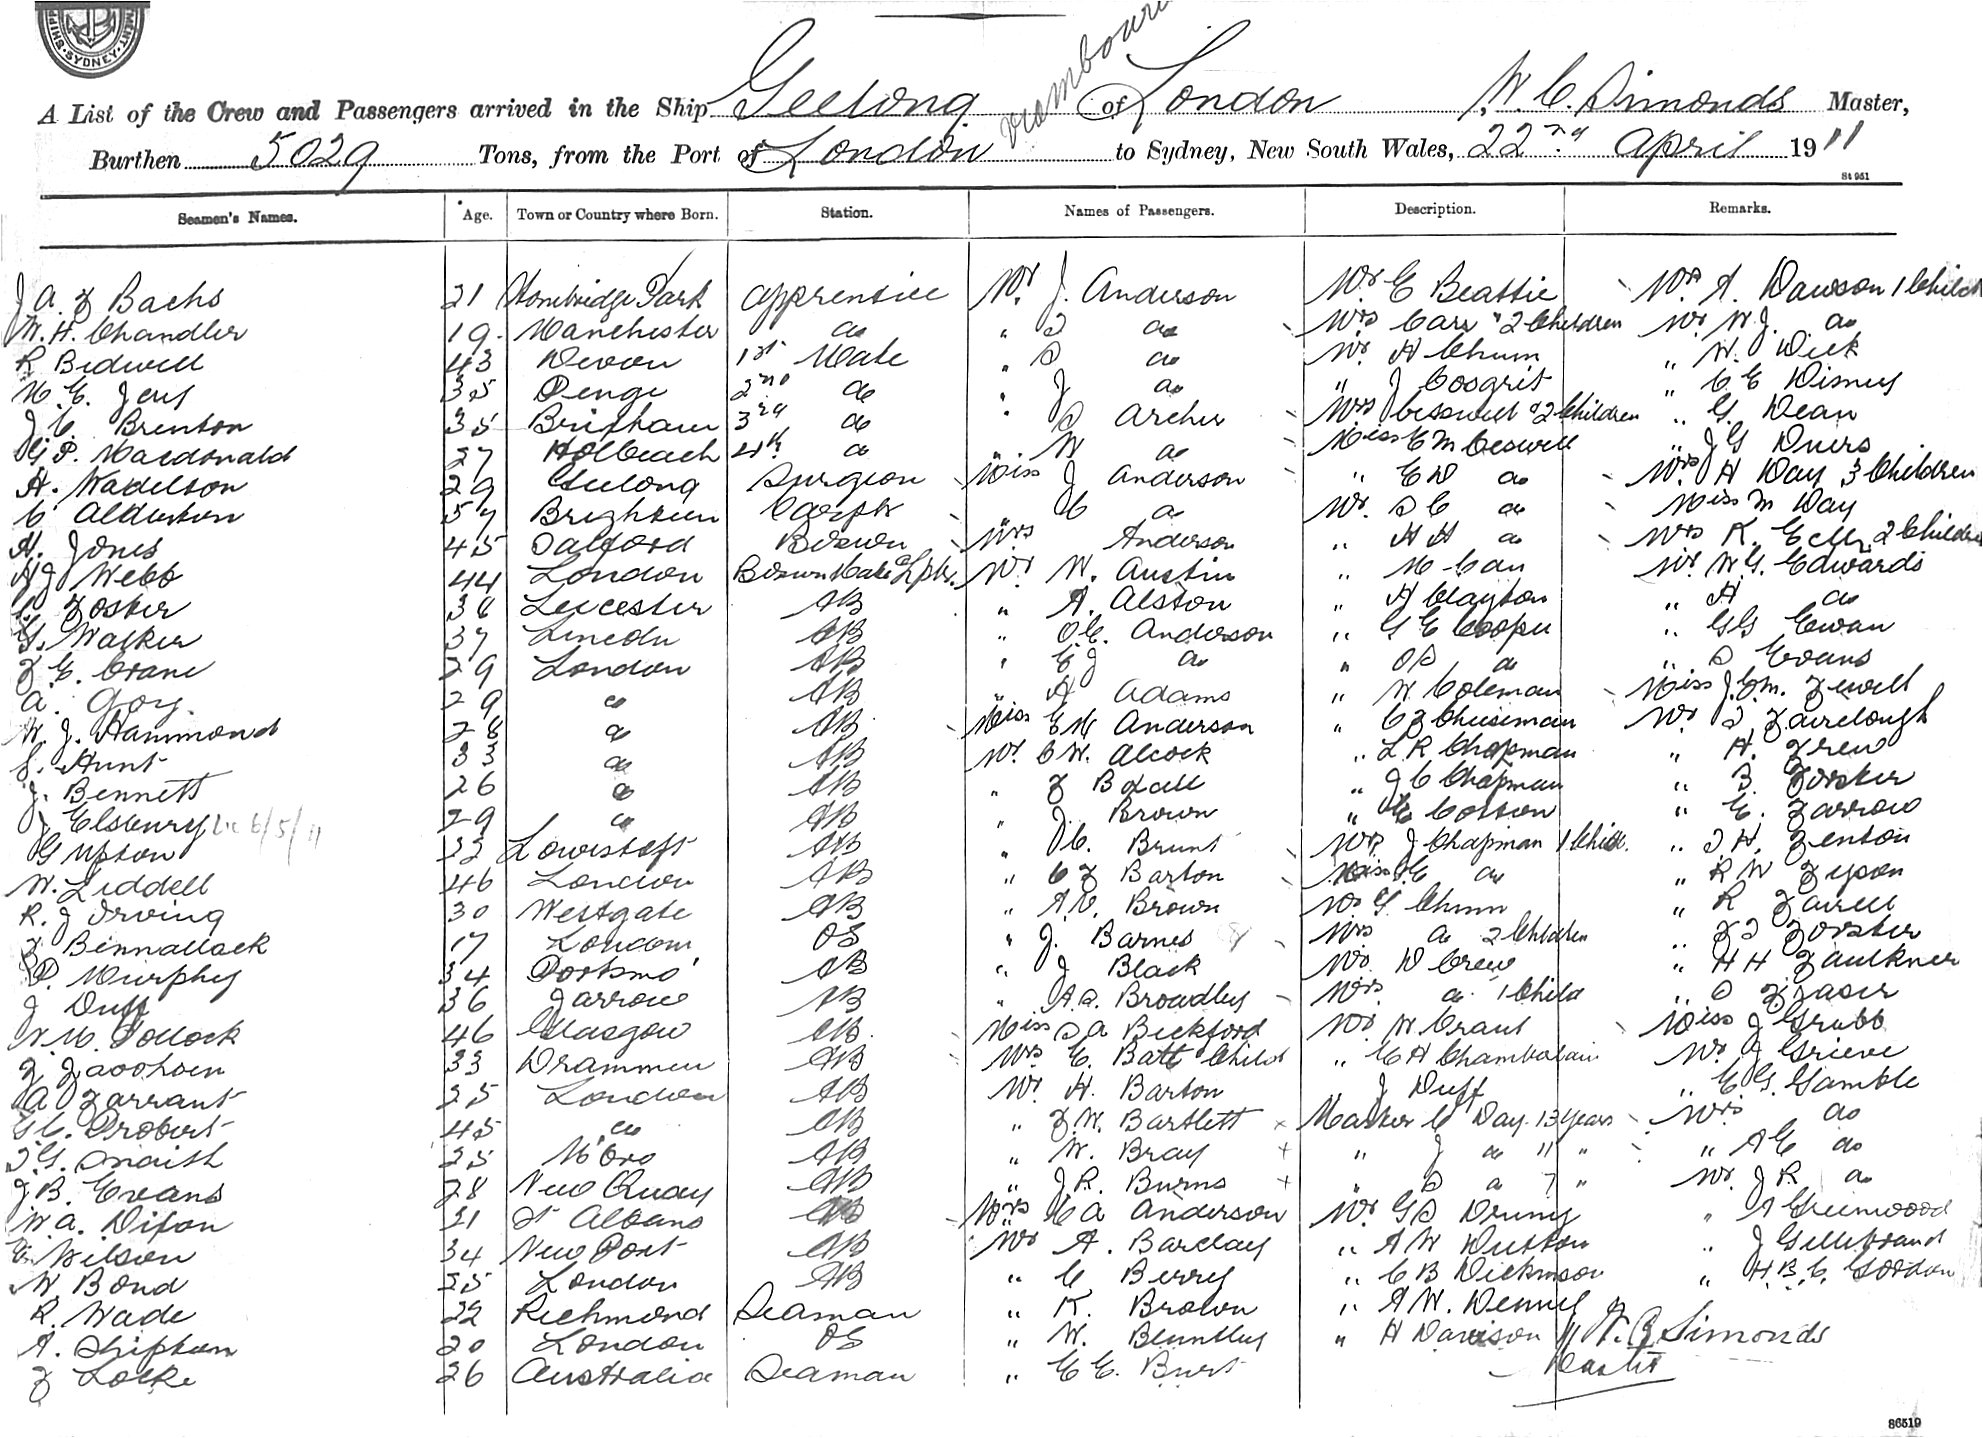 SHIPP MENT. SYDNEY.
A List of the Crew and Passengers arrived in the Ship Geelong of London, W. C. Simonds Master,
Burthen 5029 Tons, from the Port of London to Sydney, New South Wales, 22nd April 1911
St 951
Seamen's Names. Age. Town or Country where Born. Station. Names of Passengers. Description. Remarks.
J A. F Bachs 21 Park apprentice Mr J. Anderson Mr E Beattie Mrs A. Dawson 1 Child
W. H. Chandler 19 Manchester do " S do Mrs Carr " 2 Children Mr W J. do
R Bidwell 43 Devon 1st Mate " S do Mr H Chum " W. Dick
35 Penge 2nd do " J do " J Cosgrif " C E
J C. Brenton 35 3rd do " S Archer Mrs & 2 Children " G. Dean
P. Macdonald 27 Holbeach 4th do " W do Miss E M " J G
A. Wadelson 29 Geelong Surgeon Miss J Anderson " E D do Mrs H Day 3 Children
C 57 " C do Mr. S C do Miss M Day
H. Jones 45 Salford Bosun Mrs Anderson " H H do Mrs K. 2 Children
Webb 44 London Bosun Mate & Mr W. Austin " Mr. W. G. Edwards
38 Leicester AB " A. Alston " H Clayton " H do
G. Walker 37 Lincoln AB " O. E. Anderson " G E Cooper " G G Ewan
F. E. Crane 29 London AB " E J do " O S do " S Evans
A. Gory. 29 do AB " A Adams " W. Coleman Miss J. C. M. Fewell
W. J. Hammond 28 do AB Miss E M Anderson " C F Chiseman Mr S Fairclough
Hunt 33 do AB Mr. C W. Alcock " L R Chapman " H. Frew
J. Bennett 26 do AB " F " J C Chapman " B. Forster
J Elsbury 6/5/11 29 do AB " J. Brown " C Cotton " E. Farrow
G Upton 33 Lowestoft AB " C. Brunt Mrs J Chapman 1 Child. " S H. Fenton
W. Liddell 46 London AB " C F Barton Miss E do " R W Fyson
R. J Irving 30 Westgate AB " A. C. Brown Mr G. Chunn " R
F Binnallack 17 London OS " J. Barnes Mrs do 2 Children " F S Forster
Murphy 34 Portsmo' AB " J Black Mr. D Crew " H H Faulkner
J Duff 36 Jarrow AB " A. A. Broadley Mrs. do 1 Child " S Fraser
M. Pollock 46 Glasgow AB Miss S A Bickford Mr W Crant Miss J Grubb
33 Drammen AB Mrs C. Batt Child " E H Chamberlain Mr J Grieve
A Farrant 25 London AB Mr. H. Barton J Duff " E. G. Gamble
G C. Probert 45 do AB " F. W. Bartlett Master C Day 13 years Mrs do
S G. 25 AB " W. Bray " J do 11 " " A E do
J B. Evans 28 New Quay AB " J. R. Burns " S do 7 " Mr. J R do
W. A. Dixon 21 St Albans AB Mrs C A Anderson Mr. G S " A Greenwood
Wilson 34 New Port AB Mr A. Barclay " A W Dutton " J Gillibrand
W Bond 25 London AB " C. Berry " C B Dickinson " H. B. C. Gordon
R. Wade 22 Richmond Seaman " K. Brown " A W. Denny
A. Shipham 20 London OS " W. Bluntley " H Davison W. C. Simonds
F Locke 26 Australia Seaman " E E. Burt Master
86519